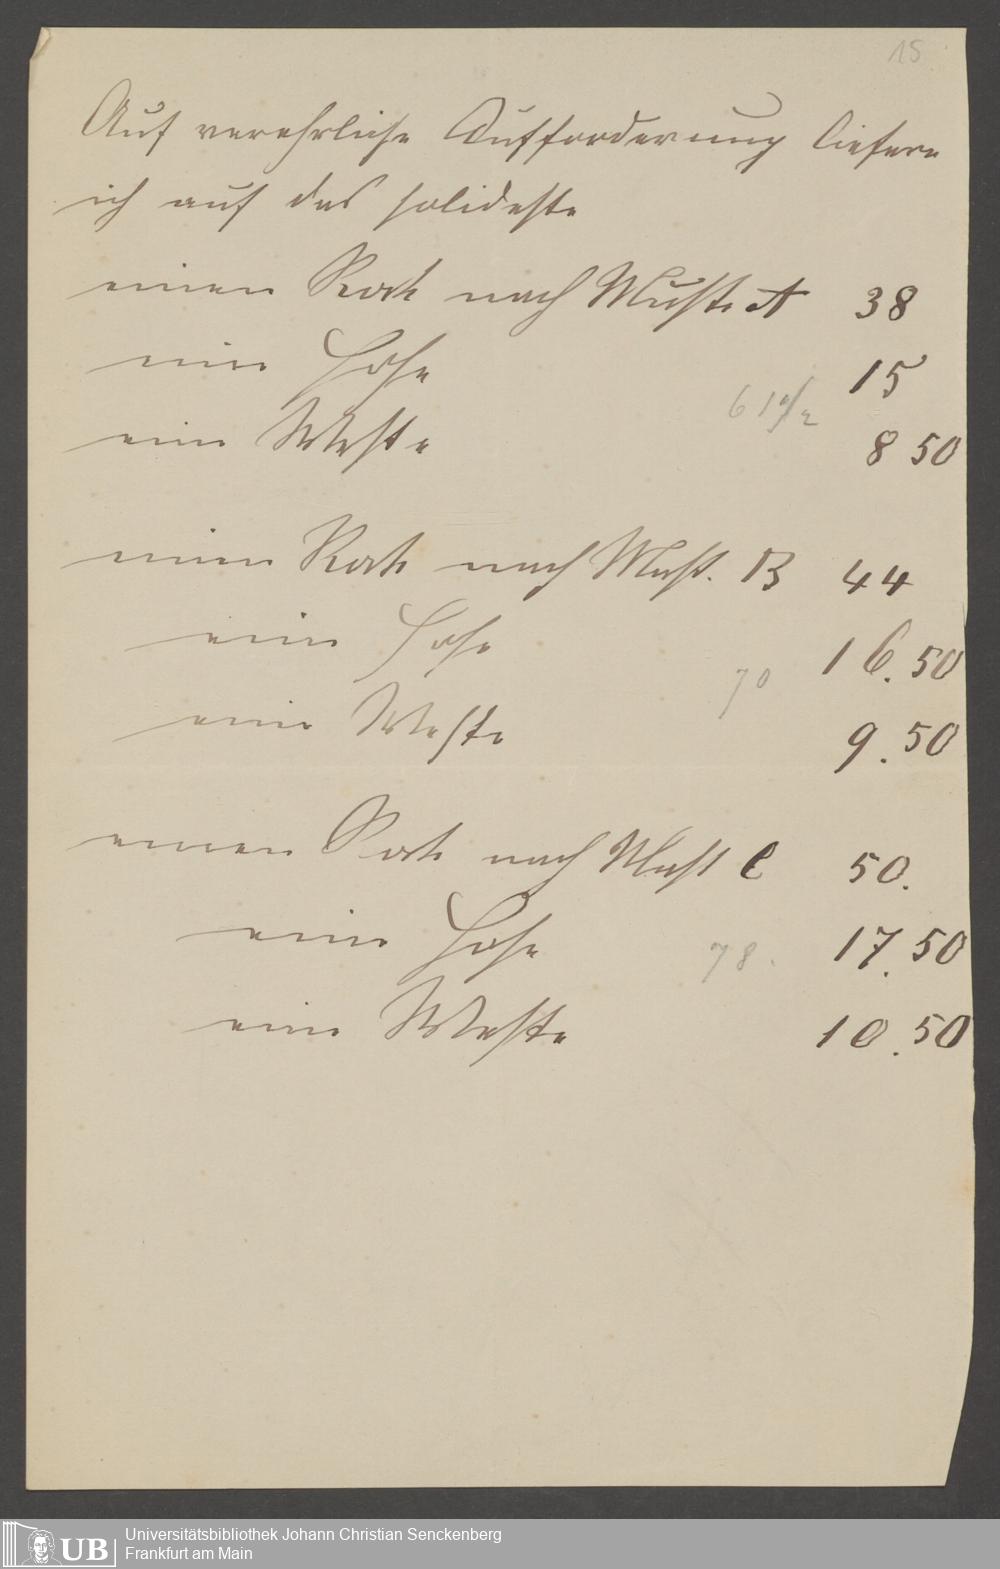 15
Auf verehrliche Aufforderung liefere
ich auf das solideste
einen Rock nach Must. A 38
eine Hose 15
61 1/2
eine Weste 8 50
einen Rock nach Must. B 44
eine Hose 16.50
70
eine Weste 9.50
einen Rock nach Must C 50.
eine Hose 78. 17.50
eine Weste 10.50
UB Universitätsbibliothek Johann Christian Senckenberg
Frankfurt am Main